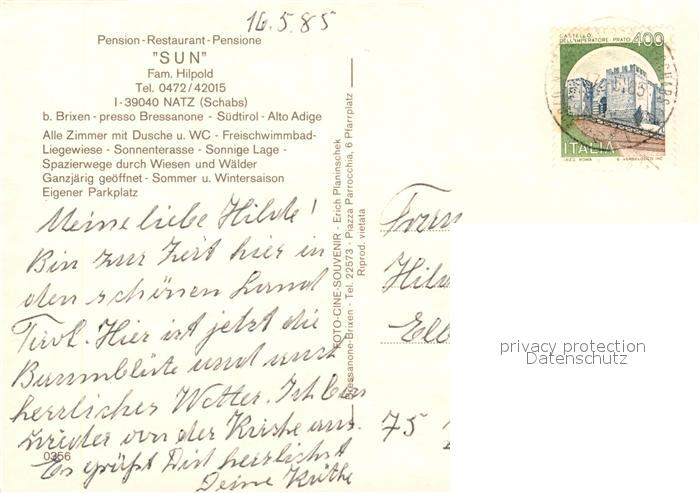 16.5.85
Pension-Restaurant-Pensione
"SUN"
Fam. Hilpold
Tel. 0472/42015
I-39040 NATZ (Schabs)
b. Brixen - presso Bressanone - Südtirol - Alto Adige
Alle Zimmer mit Dusche u. WC - Freischwimmbad-
Liegewiese - Sonnenterasse - Sonnige Lage -
Spazierwege durch Wiesen und Wälder
Ganzjärig geöffnet - Sommer u. Wintersaison
Eigener Parkplatz
Meine liebe Hilde!
Bin zur Zeit hier in
den schönen Land
Tirol. Hier ist jetzt die
Baumblüte und auch
herrliches Wetter. Ich bin
wieder von der Kirche aus.
Es grüßt Dich herzlichst
Deine Käthe
0356
FOTO-CINE-SOUVENIR - Erich Planinschek
Bressanone-Brixen - Tel. 22573 - Piazza Parrocchia, 6 Pfarrplatz
Riprod. vietata
CASTELLO
DELL'IMPERATORE - PRATO
400
ITALIA
I.P.Z.S. ROMA
Frau
Hil
Ell
75
privacy protection
Datenschutz